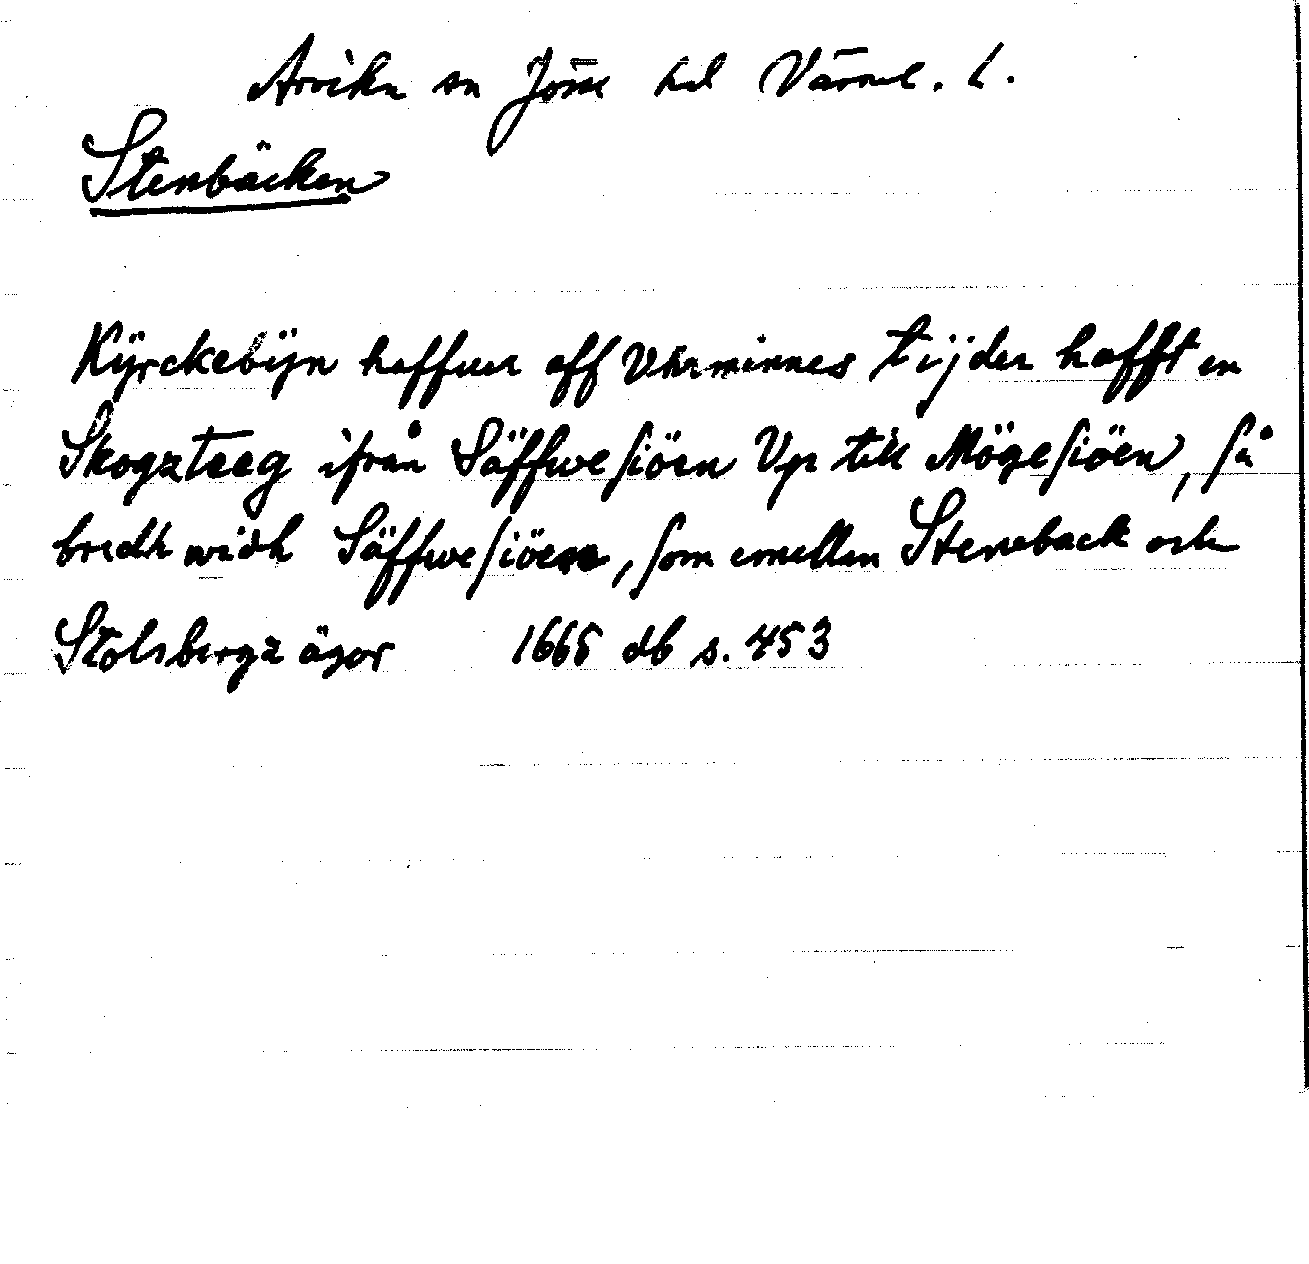 Arvika sn Jösse hd Värml. l.
Stenbäcken
Kÿrckebÿn haffuer aff Vhrminnes tijder hafft en
Skogzteeg ifrån Säffwesiöen Vp till Mögesiöen, så
bredh widh Säffwesiöen, som emellan Steneback och
Stolsbergz ägor 1665 db s. 453